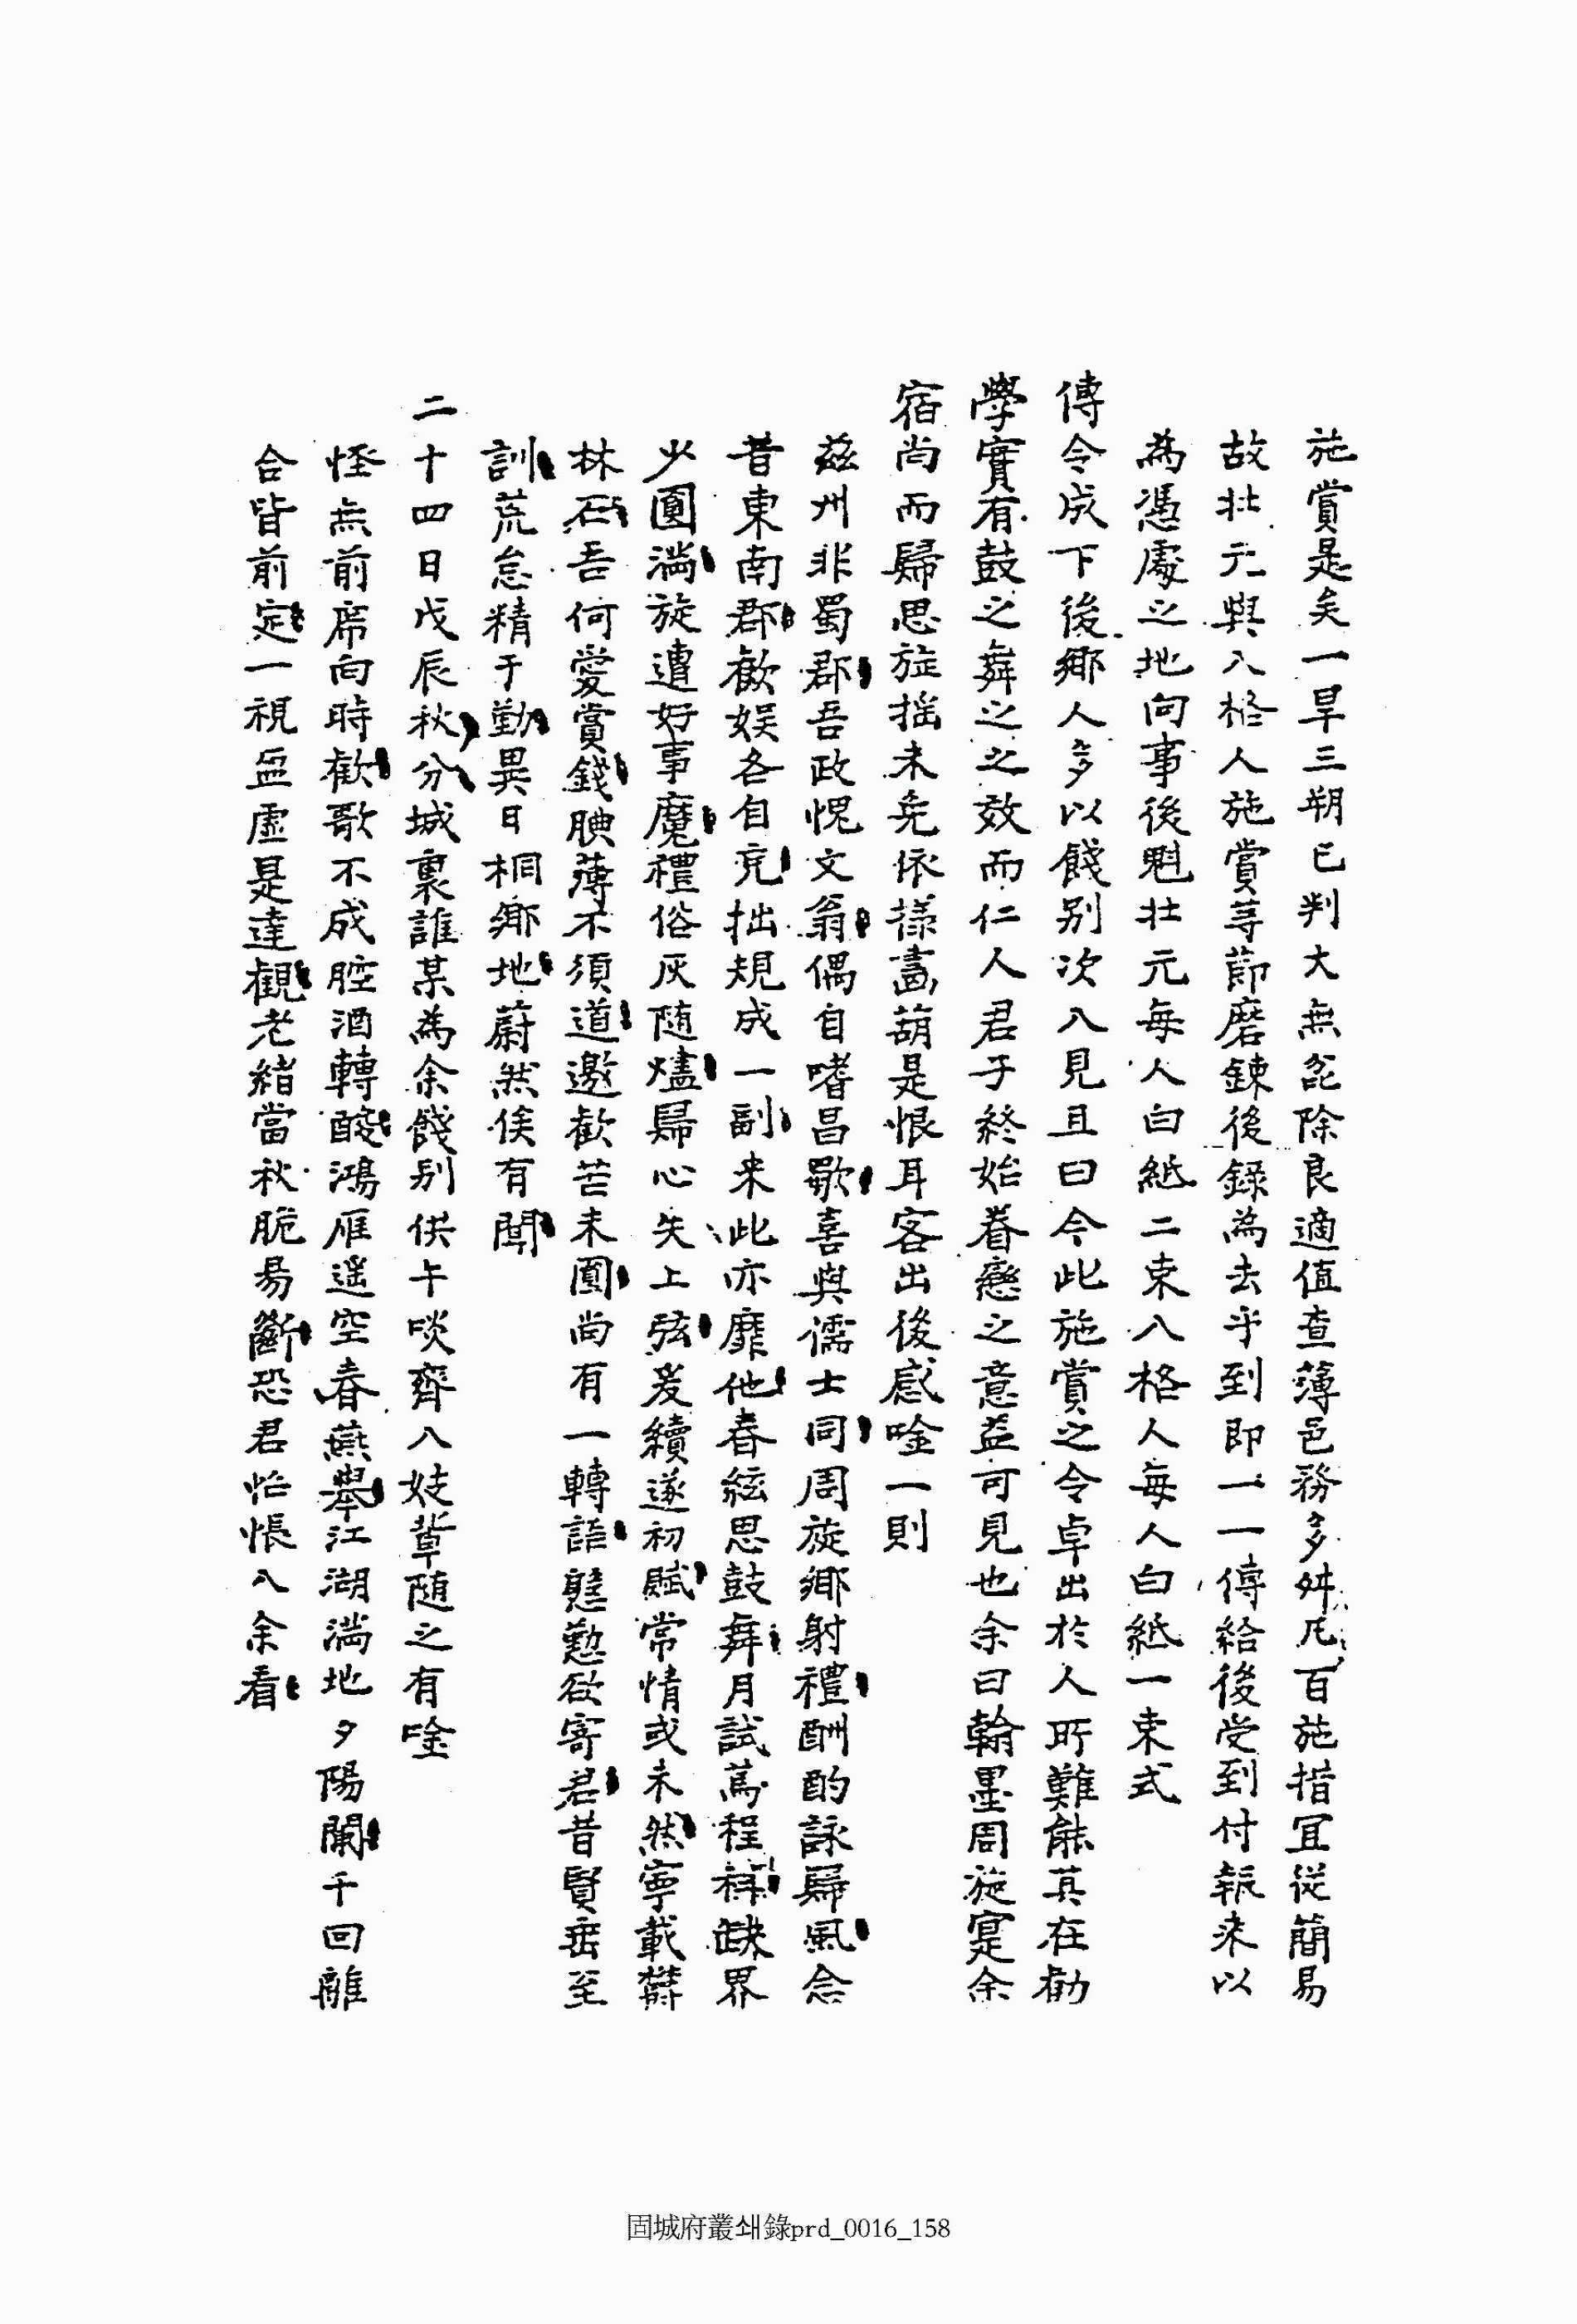 施賞是矣一旱三朔已判大無訖除良適值查薄邑務多舛凡百施措宜從簡易
故壯元與入格人施賞等節磨鍊後錄為去乎到即一一傳給後受到付報来以
為憑處之地向事後魁壮元每人白紙二束入格人每人白紙一束式
傳令成下後鄉人多以餞别次入見且曰今此施賞之令卓出於人所難能其在勸
學實有鼓之舞之之效而仁人君子終始眷戀之意益可見也余曰翰墨周旋寔余
宿尚而歸思旋搖未免依㨾畵葫是恨耳客出後感唫一則
茲州非蜀郡吾政愧文翁偶自嗜昌歜喜與儒士同周旋鄉射禮酬酌詠歸風念
昔東南郡歡娱各自充拙規成一副来此亦靡他春絃思鼓舞月試蔿程科缺界
少圓満旋遭好事魔禮俗灰随燼歸心矢上弦爰續遂初賦常情或未然寧載欝
林石吾何愛賞錢腆薄不須道邀歡苦未圓尚有一轉語慇懃欲寄君昔賢垂至
訓荒怠精于勤異日桐鄉地蔚然俟有聞
二十四日戊辰秋分城裏誰某為余餞别供午啖齊入妓輩随之有唫
怪無前席向時歡歌不成腔酒轉酸鴻雁遥空春燕舉江湖満地夕陽闌千回離
合皆前定一視盈虛是達觀老緖當秋脆易斷恐君怊悵入余看
固城府叢쇄錄prd_0016_158